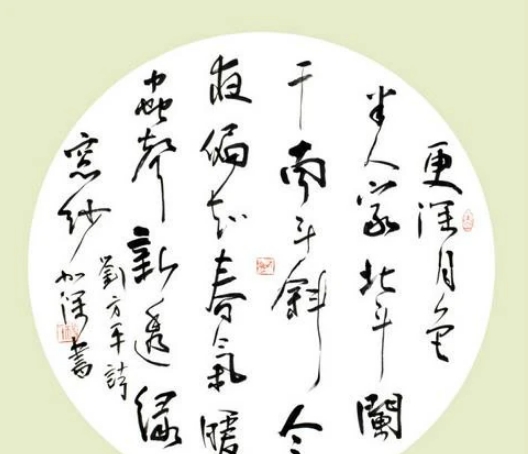 更深月色
半人家北斗闌
干南斗斜今
夜偏知春氣暖
蟲聲新透綠
窓紗
劉方平詩
深書